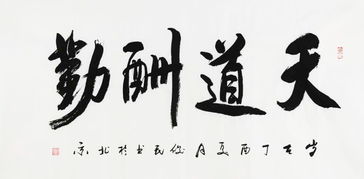 天道酬勤
岁在丁酉夏月民书於北京